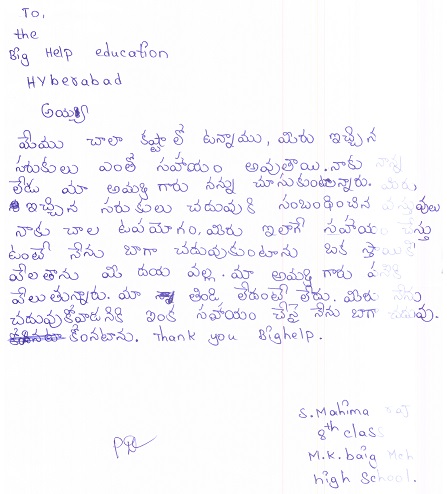 To,
the
Big Help education
HYberabad
అయ్యా
మేము చాలా కష్టా లో ఉన్నాము, మిరు ఇచ్చిన
సరుకులు ఎంతో సహాయం అవుతాయి. నాకు నాన్న
లేడు మా అమ్మ గారు నన్ను చూసుకుంటున్నారు. మిరు,
ఇచ్చిన సరుకులు చదువుకి సంబంధించిన వస్తువులు
నాకు చాల ఉపయోగం. మిరు ఇలాగే సహాయం చేస్తు
ఉంటే నేను బాగా చదువుకుంటాను ఒక స్తాయికి
వేలతాను మి దయ వల్ల. మా అమ్మ గారు పనికి
వేలుతున్నారు. మా తిండి లేదంటే లేదు. మిరు నేను
చదువుకోవాడనికి ఇంక సహాయం చేస్తే నేను బాగా చదువు.
కోంనటాను. Thank you Bighelp.
S. Mahima Raj
8th class
M.K. baig Mch
high School.